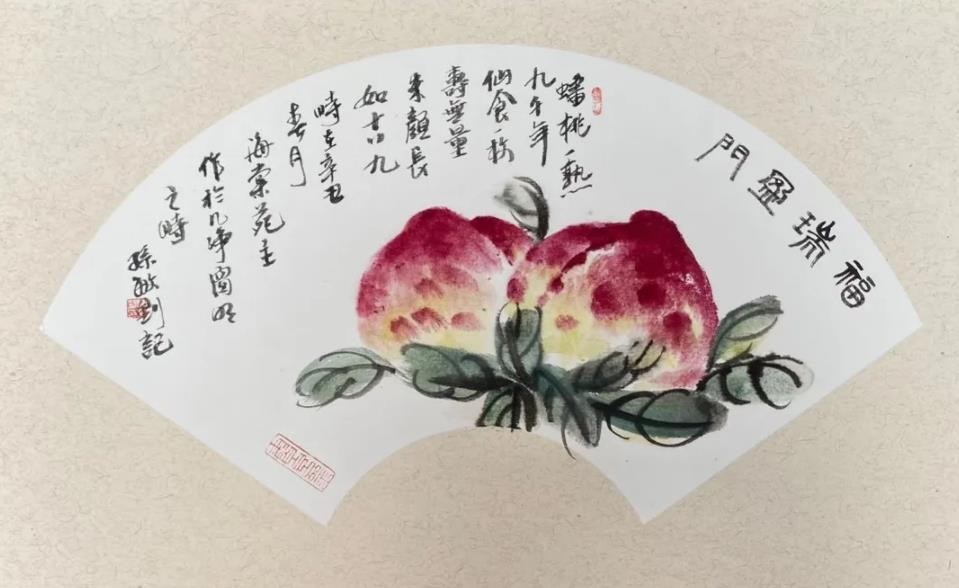 福瑞盈門
蟠桃一熟
九千年
仙食一
壽無量
朱顏長
如十八九
時在辛丑
春月
海棠苑主
作於几净窗明
之時
孫敏
記